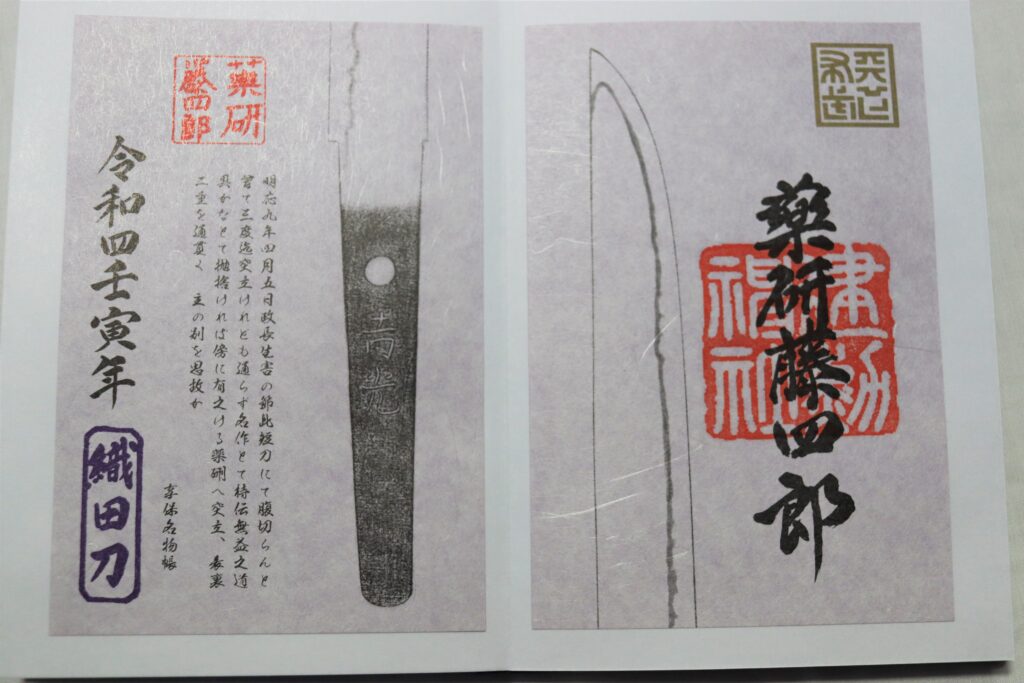 天下布武
薬研藤四郎
建勲
神社
吉光
明応九年四月五日政長生害の節此短刀にて腹切らんと
曽て三度迄突立けれども通らず名作とて持伝無益之道
具かなとて抛捨ければ傍に有之ける薬研へ突立、表裏
二重を通貫く 主の別を思故か
享保名物帳
藥研
藤四郎
令和四壬寅年
織田刀